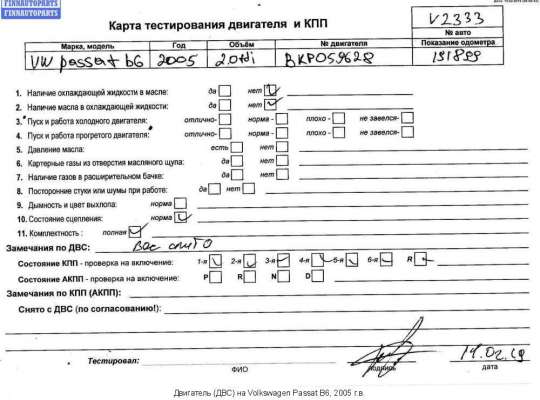 FINNAUTOPARTS
FINNAUTOPARTS
Карта тестирования двигателя и КПП
V2333
№ авто
Марка, модель Год Объём № двигателя Показание одометра
VW passat b6 2005 2.0tdi BKP059628 191899
1. Наличие охлаждающей жидкости в масле: да нет
2. Наличие масла в охлаждающей жидкости: да нет
3. Пуск и работа холодного двигателя: отлично- норма - плохо - не завелся-
4. Пуск и работа прогретого двигателя: отлично- норма - плохо - не завелся-
5. Давление масла: есть нет
6. Картерные газы из отверстия масляного щупа: да нет
7. Наличие газов в расширительном бачке: да нет
8. Посторонние стуки или шумы при работе: да нет
9. Дымность и цвет выхлопа: норма
10. Состояние сцепления: норма
11. Комплектность : полная
Замечания по ДВС:
Состояние КПП - проверка на включение: 1-я 2-я 3-я 4-я 5-я 6-я R
Состояние АКПП - проверка на включение: P R N D
Замечания по КПП (АКПП):
Снято с ДВС (по согласованию!):
Тестировал: ФИО подпись дата,
Двигатель (ДВС) на Volkswagen Passat B6, 2005 г.в.